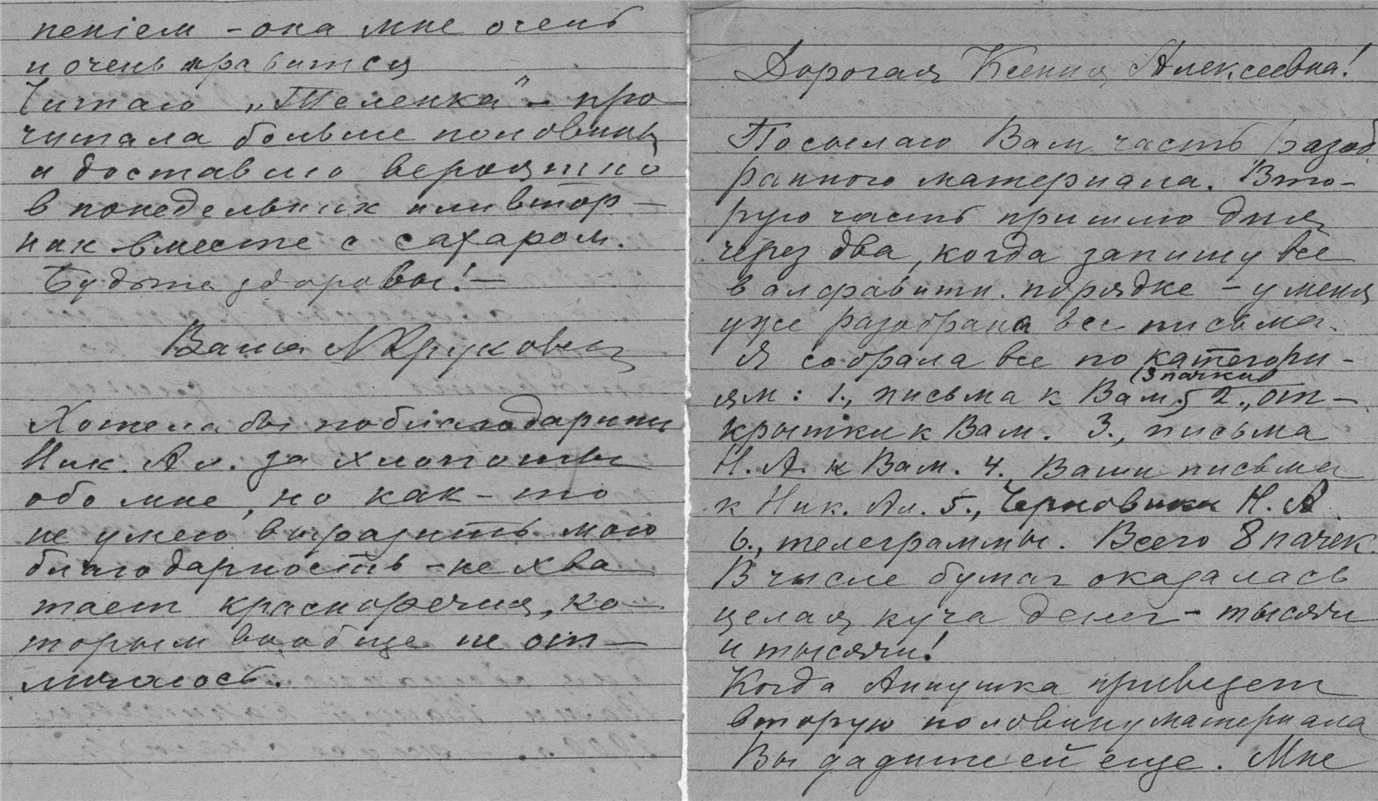 пеніем – она мне очень
и очень нравится
Читаю „Теленка" – про
читала больше половины
и доставлю вероятно
в понедельник или втор–
ник вместе с сахаром.
Будьте здоровы! –
Ваша
Хотела бы поблагодарить
Ник. Ал. за хлопоты
обо мне, но как-то
не умею выразить мою
благодарность – не хва
тает красноречия, ко–
торым вообще не от–
личаюсь.
Дорогая Ксения Алексеевна!
Посылаю Вам часть разоб
ранного материала. Вто–
рую часть пришлю дня
через два, когда запишу все
в алфавитн. порядке – у меня
уже разобраны все письма.
Я собрала все по категори–
(3 пачки)
ям: 1., письма к Вам, 2., от–
крытки к Вам. 3., письма
Н. А. к Вам. 4. Ваши письма
к Ник. Ал. 5., Черновики Н. А.
6., телеграммы. Всего 8 пачек.
В числе бумаг оказалась
целая куча денег – тысячи
и тысячи!
Когда Аннушка привезет
вторую половину материала
Вы дадите ей еще. Мне